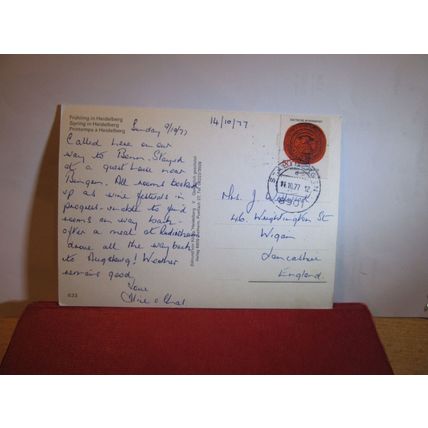 Frühling in Heidelberg
Spring in Heidelberg
Printemps à Heidelberg
Sunday 9/10/77
14/10/77
Called here on our
way to Bonn. Stayed
at a guest house near
Bingen. All rooms booked
up as wine festivals in
progress. unable to find
rooms on way back
after a meal at
drove all the way back
to Augsburg! Weather
remains good.
Love
Mrs. J.
46. St
Wigan
Lancashire
England.
10.77
8901
633